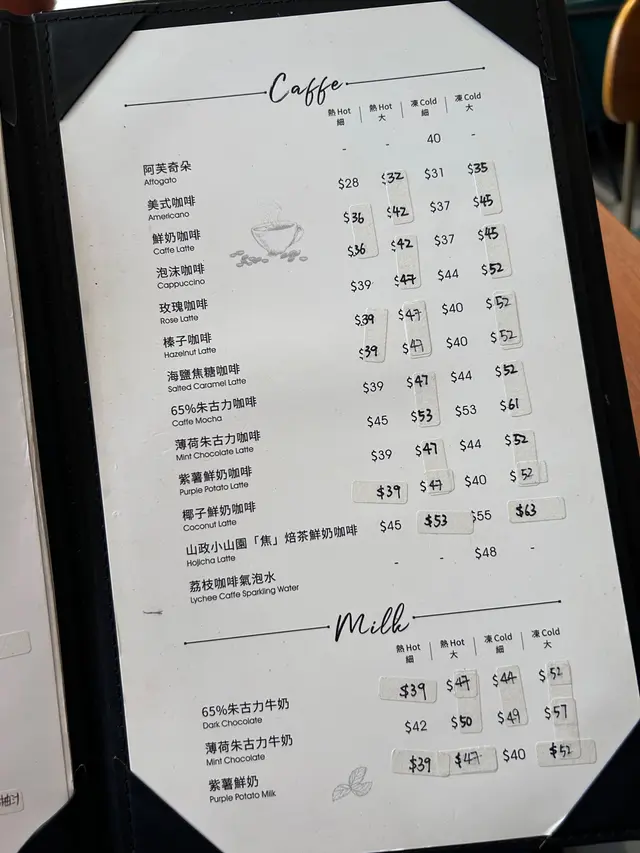 Caffe
熱 Hot 細 | 熱 Hot 大 | 凍 Cold 細 | 凍 Cold 大
阿芙奇朵 - - 40 -
Affogato
美式咖啡 $28 $32 $31 $35
Americano
鮮奶咖啡 $36 $42 $37 $45
Caffe Latte
泡沫咖啡 $36 $42 $37 $45
Cappuccino
玫瑰咖啡 $39 $47 $44 $52
Rose Latte
榛子咖啡 $39 $47 $40 $52
Hazelnut Latte
海鹽焦糖咖啡 $39 $47 $40 $52
Salted Caramel Latte
65%朱古力咖啡 $39 $47 $44 $52
Caffe Mocha
薄荷朱古力咖啡 $45 $53 $53 $61
Mint Chocolate Latte
紫薯鮮奶咖啡 $39 $47 $44 $52
Purple Potato Latte
椰子鮮奶咖啡 $39 $47 $40 $52
Coconut Latte
山政小山園「焦」焙茶鮮奶咖啡 $45 $53 $55 $63
Hojicha Latte
荔枝咖啡氣泡水 - - $48 -
Lychee Caffe Sparkling Water
Milk
熱 Hot 細 | 熱 Hot 大 | 凍 Cold 細 | 凍 Cold 大
65%朱古力牛奶 $39 $47 $44 $52
Dark Chocolate
薄荷朱古力牛奶 $42 $50 $49 $57
Mint Chocolate
紫薯鮮奶 $39 $47 $40 $52
Purple Potato Milk